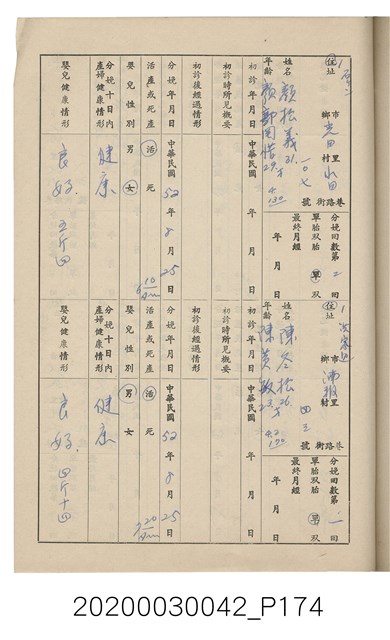 住址
鄉市
村里
路街巷
號
分娩回數第二回
單胎双胎
單双
最終月經
年月日
姓名 顏松義 31
年齡 顏郭
初診年月日
中華民國
年月日
初診時所見概要
初診後經過情形
分娩年月日
中華民國52年8月25日
活產或死產
活 死
嬰兒性別
男 女
分娩十日內產婦健康情形
健康
嬰兒健康情形
良好 五斤四
住址
鄉市
村里
路街巷
四三號
分娩回數第二回
單胎双胎
單双
最終月經
年月日
姓名 陳冬松 26
年齡 陳黃敏 23
初診年月日
中華民國
年月日
初診時所見概要
初診後經過情形
分娩年月日
中華民國52年8月25日
活產或死產
活 死
嬰兒性別
男 女
分娩十日內產婦健康情形
健康
嬰兒健康情形
良好 四斤十四
20200030042_P174